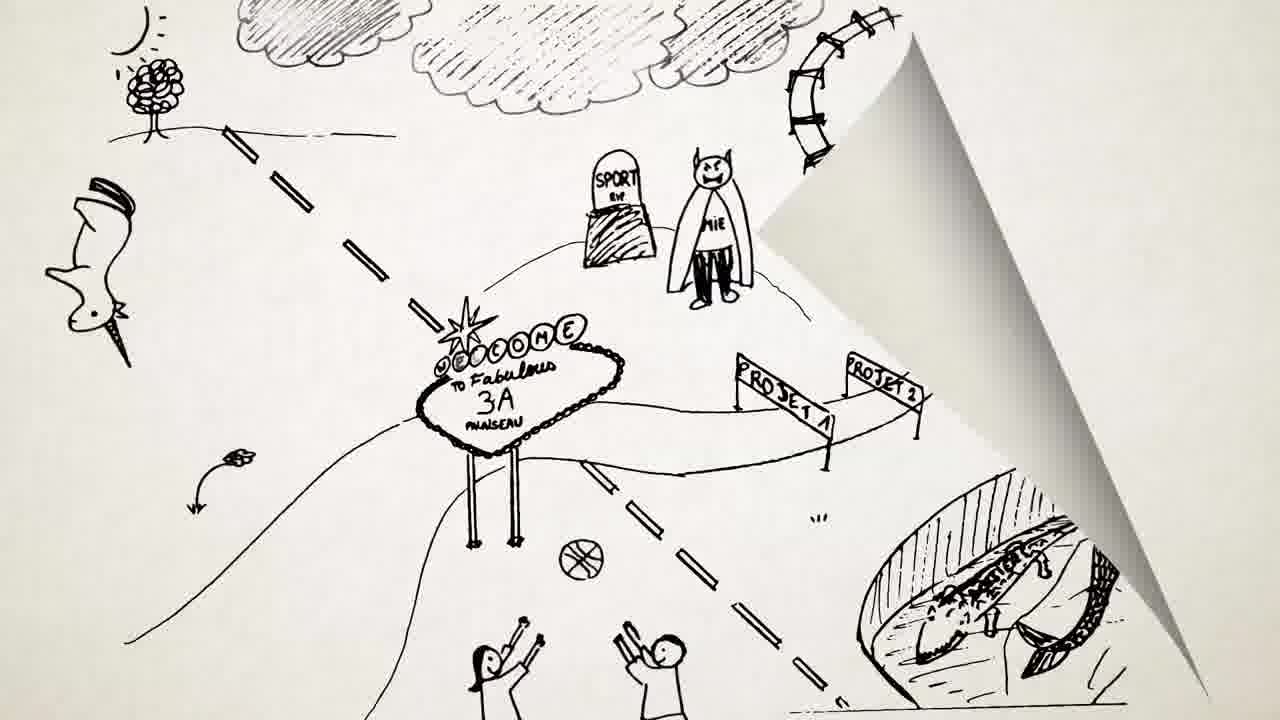 SPORT
RIP
MIE
WELCOME
TO Fabulous
3A
PALAISEAU
PROJET 1
PROJET 2